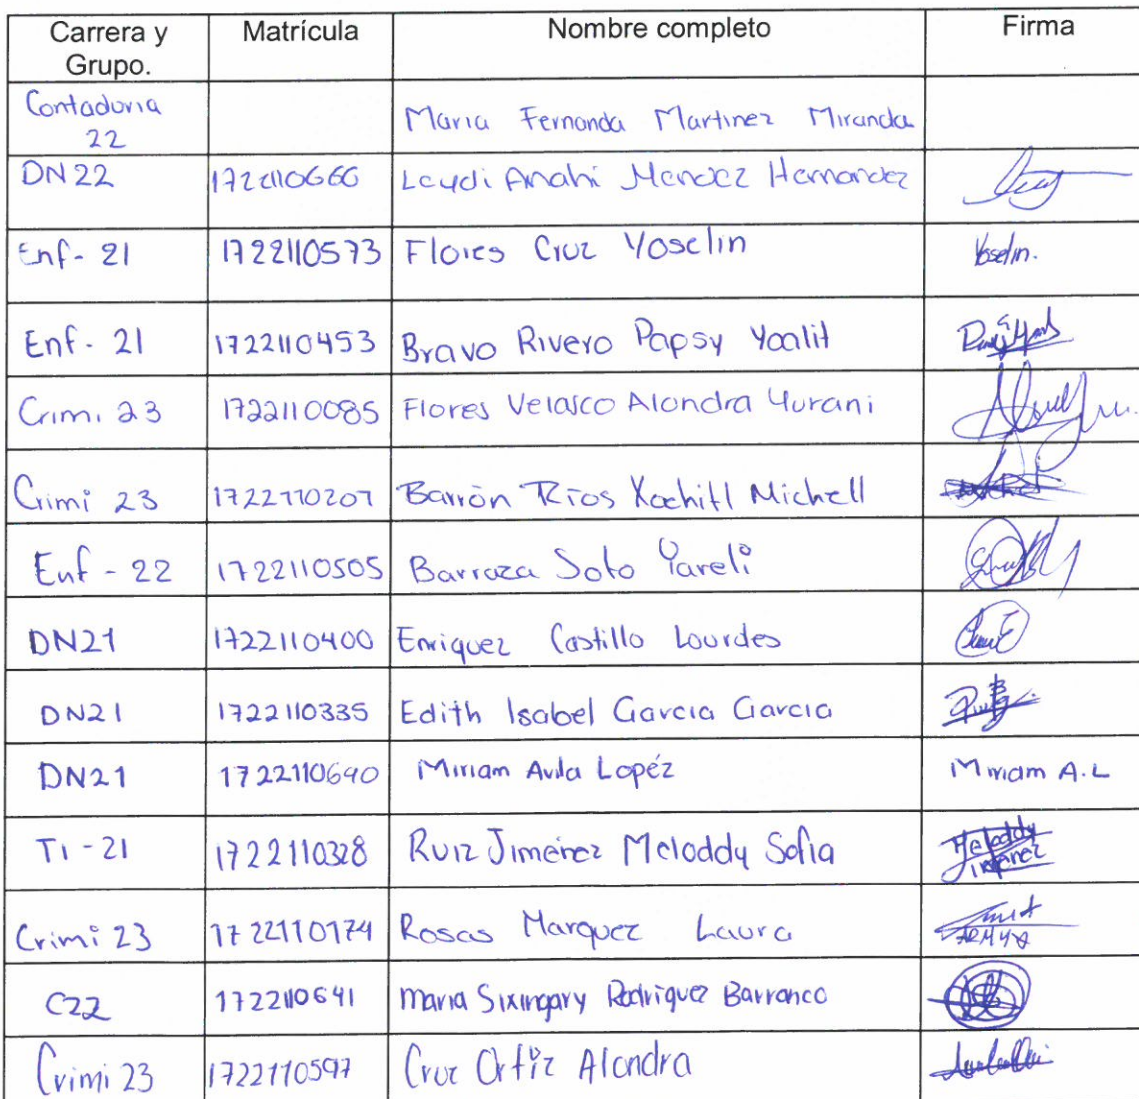 Carrera y Grupo. Matrícula Nombre completo Firma
Contaduria 22 Maria Fernanda Martinez Miranda
DN 22 1722110666 Leydi Anahi Mendez Hernandez
Enf- 21 1722110573 Flores Cruz Yoselin Yoselin.
Enf- 21 1722110453 Bravo Rivero Papsy Yoalit
Crimi 23 1722110085 Flores Velasco Alondra Yurani
Crimi 23 1722110207 Barrón Ríos Xochitl Michell
Enf - 22 1722110505 Barraza Soto Yareli
DN21 1722110400 Enriquez Castillo Lourdes
DN21 1722110335 Edith Isabel Garcia Garcia
DN21 1722110640 Miriam Avila Lopéz Miriam A.L
TI - 21 1722110328 Ruiz Jimenez Meloddy Sofia Meloddy Jimenez
Crimi 23 1722110174 Rosas Marquez Laura
C22 1722110641 Maria Rodriguez Barranco
Crimi 23 1722110597 Cruz Ortiz Alondra